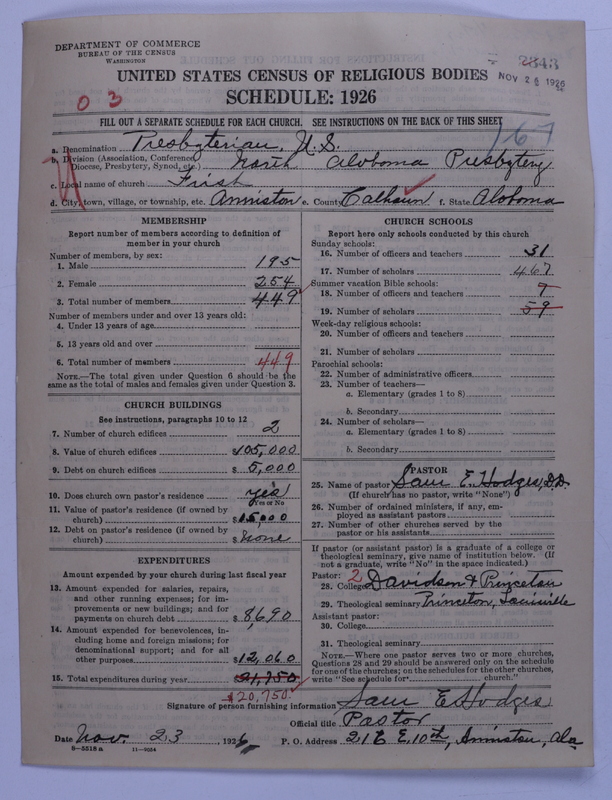 DEPARTMENT OF COMMERCE
BUREAU OF THE CENSUS
WASHINGTON
2343
NOV 26 1926
UNITED STATES CENSUS OF RELIGIOUS BODIES
03
SCHEDULE: 1926
FILL OUT A SEPARATE SCHEDULE FOR EACH CHURCH. SEE INSTRUCTIONS ON THE BACK OF THIS SHEET
167
a. Denomination Presbyterian, U.S.
b. Division (Association, Conference, Diocese, Presbytery, Synod, etc.) North Alabama Presbytery
c. Local name of church First
d. City, town, village, or township, etc. Anniston e. County Calhoun f. State Alabama
MEMBERSHIP
Report number of members according to definition of
member in your church
Number of members, by sex:
1. Male 195
2. Female 254
3. Total number of members 449
Number of members under and over 13 years old:
4. Under 13 years of age
5. 13 years old and over
6. Total number of members 449
NOTE.—The total given under Question 6 should be the
same as the total of males and females given under Question 3.
CHURCH BUILDINGS
See instructions, paragraphs 10 to 12
7. Number of church edifices 2
8. Value of church edifices $105,000
9. Debt on church edifices $5,000
10. Does church own pastor's residence yes
Yes or No
11. Value of pastor's residence (if owned by
church) $15000
12. Debt on pastor's residence (if owned by
church) $none
EXPENDITURES
Amount expended by your church during last fiscal year
13. Amount expended for salaries, repairs,
and other running expenses; for im-
provements or new buildings; and for
payments on church debt $8,690
14. Amount expended for benevolences, in-
cluding home and foreign missions; for
denominational support; and for all
other purposes $12,060
15. Total expenditures during year 21,750
$20,750.
CHURCH SCHOOLS
Report here only schools conducted by this church
Sunday schools:
16. Number of officers and teachers 31
17. Number of scholars 467
Summer vacation Bible schools:
18. Number of officers and teachers 7
19. Number of scholars 59
Week-day religious schools:
20. Number of officers and teachers
21. Number of scholars
Parochial schools:
22. Number of administrative officers
23. Number of teachers—
a. Elementary (grades 1 to 8)
b. Secondary
24. Number of scholars—
a. Elementary (grades 1 to 8)
b. Secondary
PASTOR
25. Name of pastor Sam E. Hodges, D.D.
(If church has no pastor, write "None")
26. Number of ordained ministers, if any, em-
ployed as assistant pastors
27. Number of other churches served by the
pastor or his assistants
If pastor (or assistant pastor) is a graduate of a college or
theological seminary, give name of institution below. (If
not a graduate, write "No" in the space indicated.)
Pastor: 2
28. College Davidson & Princeton
29. Theological seminary Princeton, Louisville
Assistant pastor:
30. College
31. Theological seminary
NOTE.—Where one pastor serves two or more churches,
Questions 28 and 29 should be answered only on the schedule
for one of the churches; on the schedules for the other churches,
write "See schedule for church."
Signature of person furnishing information Sam E Hodges
Official title Pastor
Date Nov. 23, 1926 P. O. Address E. 10th, Anniston, Ala
8—5518 a 11—9554